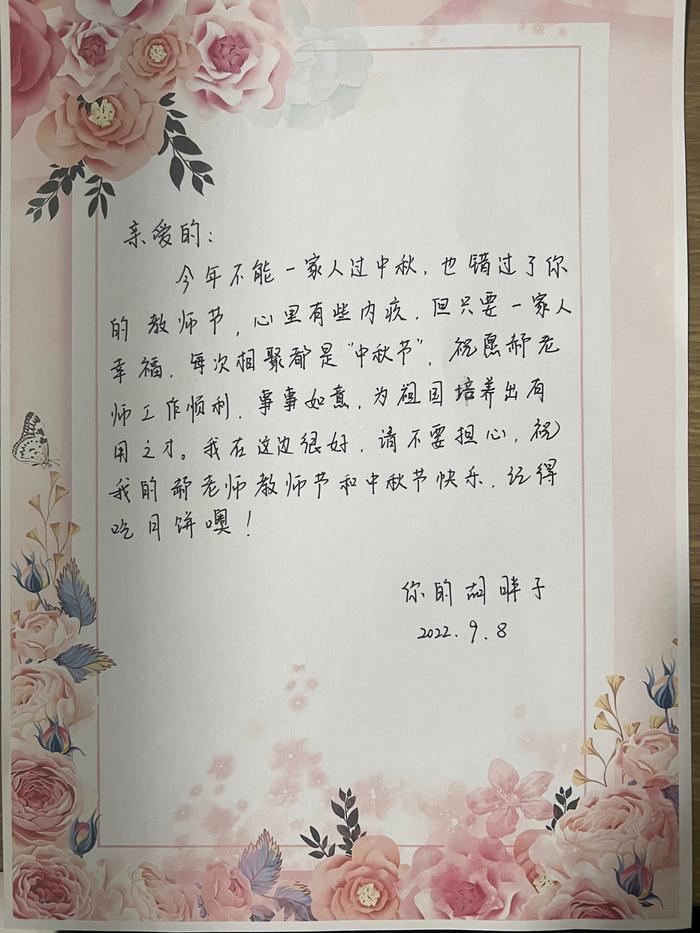 亲爱的：
今年不能一家人过中秋，也错过了你
的教师节，心里有些内疚，但只要一家人
幸福，每次相聚都是“中秋节”，祝愿郝老
师工作顺利，事事如意，为祖国培养出有
用之才。我在这边很好，请不要担心，祝
我的郝老师教师节和中秋节快乐，记得
吃月饼噢！
你的胡胖子
2022.9.8